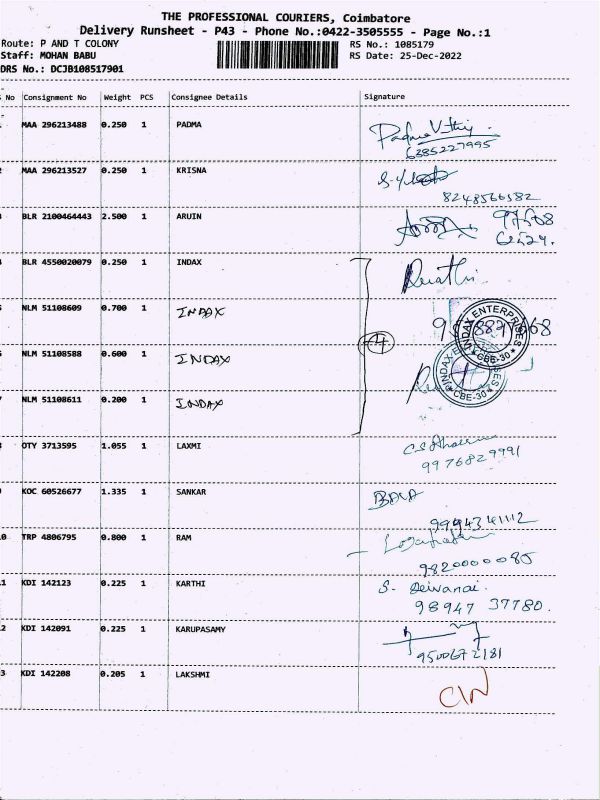 THE PROFESSIONAL COURIERS, Coimbatore
Delivery Runsheet - P43 - Phone No.:0422-3505555 - Page No.:1
Route: P AND T COLONY
RS No.: 1085179
Staff: MOHAN BABU
RS Date: 25-Dec-2022
DRS No.: DCJB108517901
No Consignment No Weight PCS Consignee Details Signature
MAA 296213488 0.250 1 PADMA
6385227995
MAA 296213527 0.250 1 KRISNA
8248566582
BLR 2100464443 2.500 1 ARUIN
BLR 4550020079 0.250 1 INDAX
NLM 51108609 0.700 1 INDAX
4
INDAX ENTERPRISES
CBE-30
NLM 51108588 0.600 1 INDAX
CBE-30
NLM 51108611 0.200 1 INDAX
OTY 3713595 1.055 1 LAXMI
9976829991
KOC 60526677 1.335 1 SANKAR
BALA
9994341112
0 TRP 4806795 0.800 1 RAM
9820000085
1 KDI 142123 0.225 1 KARTHI
S. Deivanai.
98947 37780.
2 KDI 142091 0.225 1 KARUPASAMY
9500672181
3 KDI 142208 0.205 1 LAKSHMI